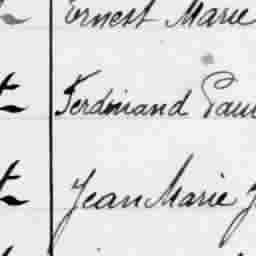 Ernest Marie
Ferdinand Paul
Jean Marie